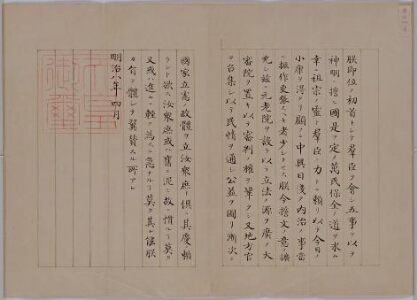 朕即位ノ初首トシテ群臣ヲ會シ五事ヲ以テ
神明ニ誓ヒ國是ヲ定メ萬民保全ノ道ヲ求ム
幸ニ祖宗ノ靈ト群臣ノ力トニ頼リ以テ今日ノ
小康ヲ得タリ顧ニ中興日浅ク内治ノ事當ニ
振作更張スヘキ者少シトセス朕今誓文ノ意ヲ擴
充シ茲ニ元老院ヲ設ケ以テ立法ノ源ヲ廣メ大
審院ヲ置キ以テ審判ノ權ヲ鞏クシ又地方官
ヲ召集シ以テ民情ヲ通シ公益ヲ圖リ漸次ニ
國家立憲ノ政體ヲ立テ汝衆庶ト倶ニ其慶ニ頼
ラント欲ス汝衆庶或ハ舊ニ泥ミ故ニ慣ルヽヿ莫ク
又或ハ進ムニ輕ク爲スニ急ナルヿ莫ク其レ能朕
カ旨ヲ體シテ翼賛スル所アレ
明治八年四月
天皇
御璽